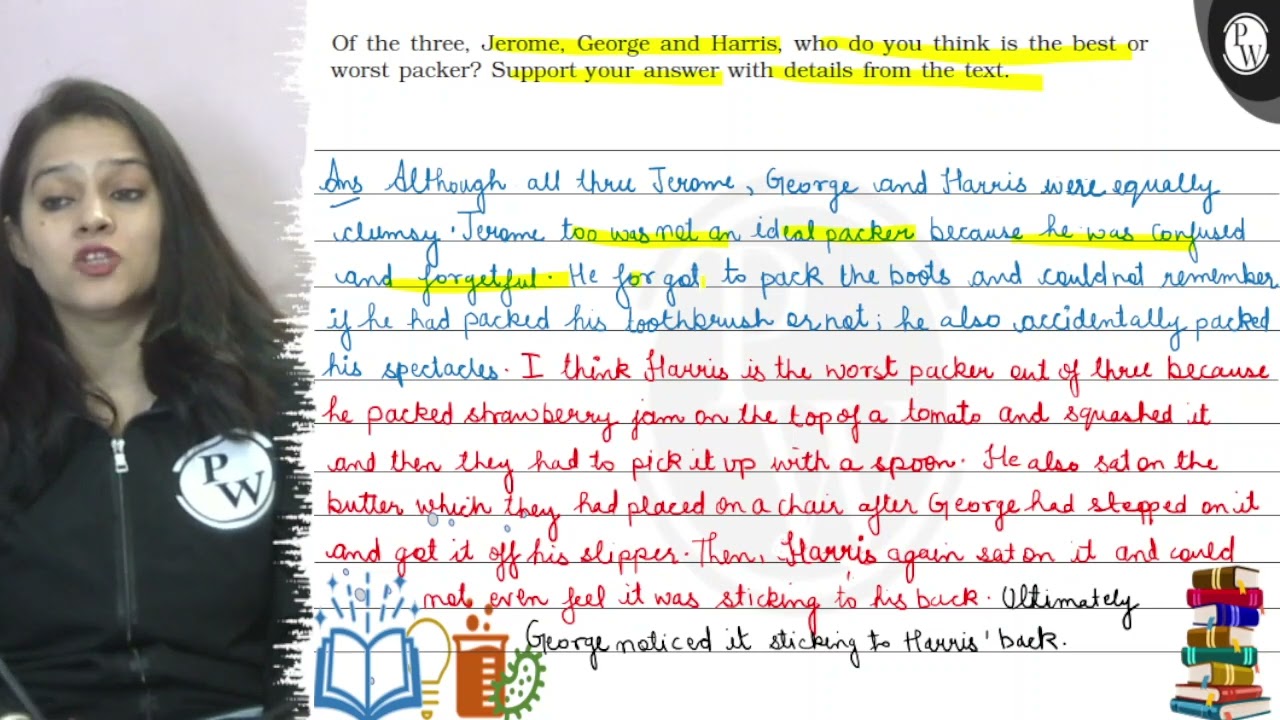 Of the three, Jerome, George and Harris, who do you think is the best or
worst packer? Support your answer with details from the text.
PW
Ans Although all three Jerome, George and Harris were equally
clumsy. Jerome too was not an ideal packer because he was confused
and forgetful. He forgot to pack the boots and could not remember
if he had packed his toothbrush or not; he also accidentally packed
his spectacles. I think Harris is the worst packer out of three because
he packed strawberry jam on the top of a tomato and squashed it
and then they had to pick it up with a spoon. He also sat on the
butter which they had placed on a chair after George had stepped on it
and got it off his slipper. Then, Harris again sat on it and could
not even feel it was sticking to his back. Ultimately
George noticed it sticking to Harris' back.
PW